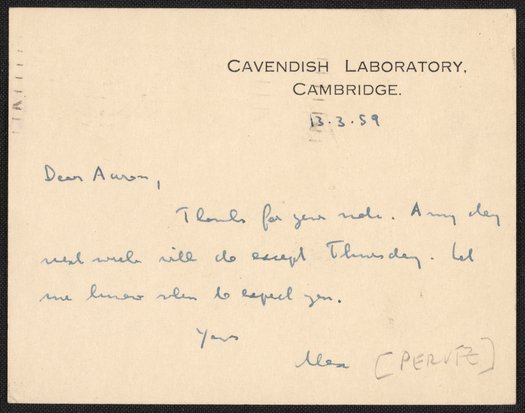 CAVENDISH LABORATORY,
CAMBRIDGE.
13.3.59
Dear Aaron,
Thanks for your note. Any day
next week will do except Thursday. Let
me know when to expect you.
Yours
Max [PERUTZ]